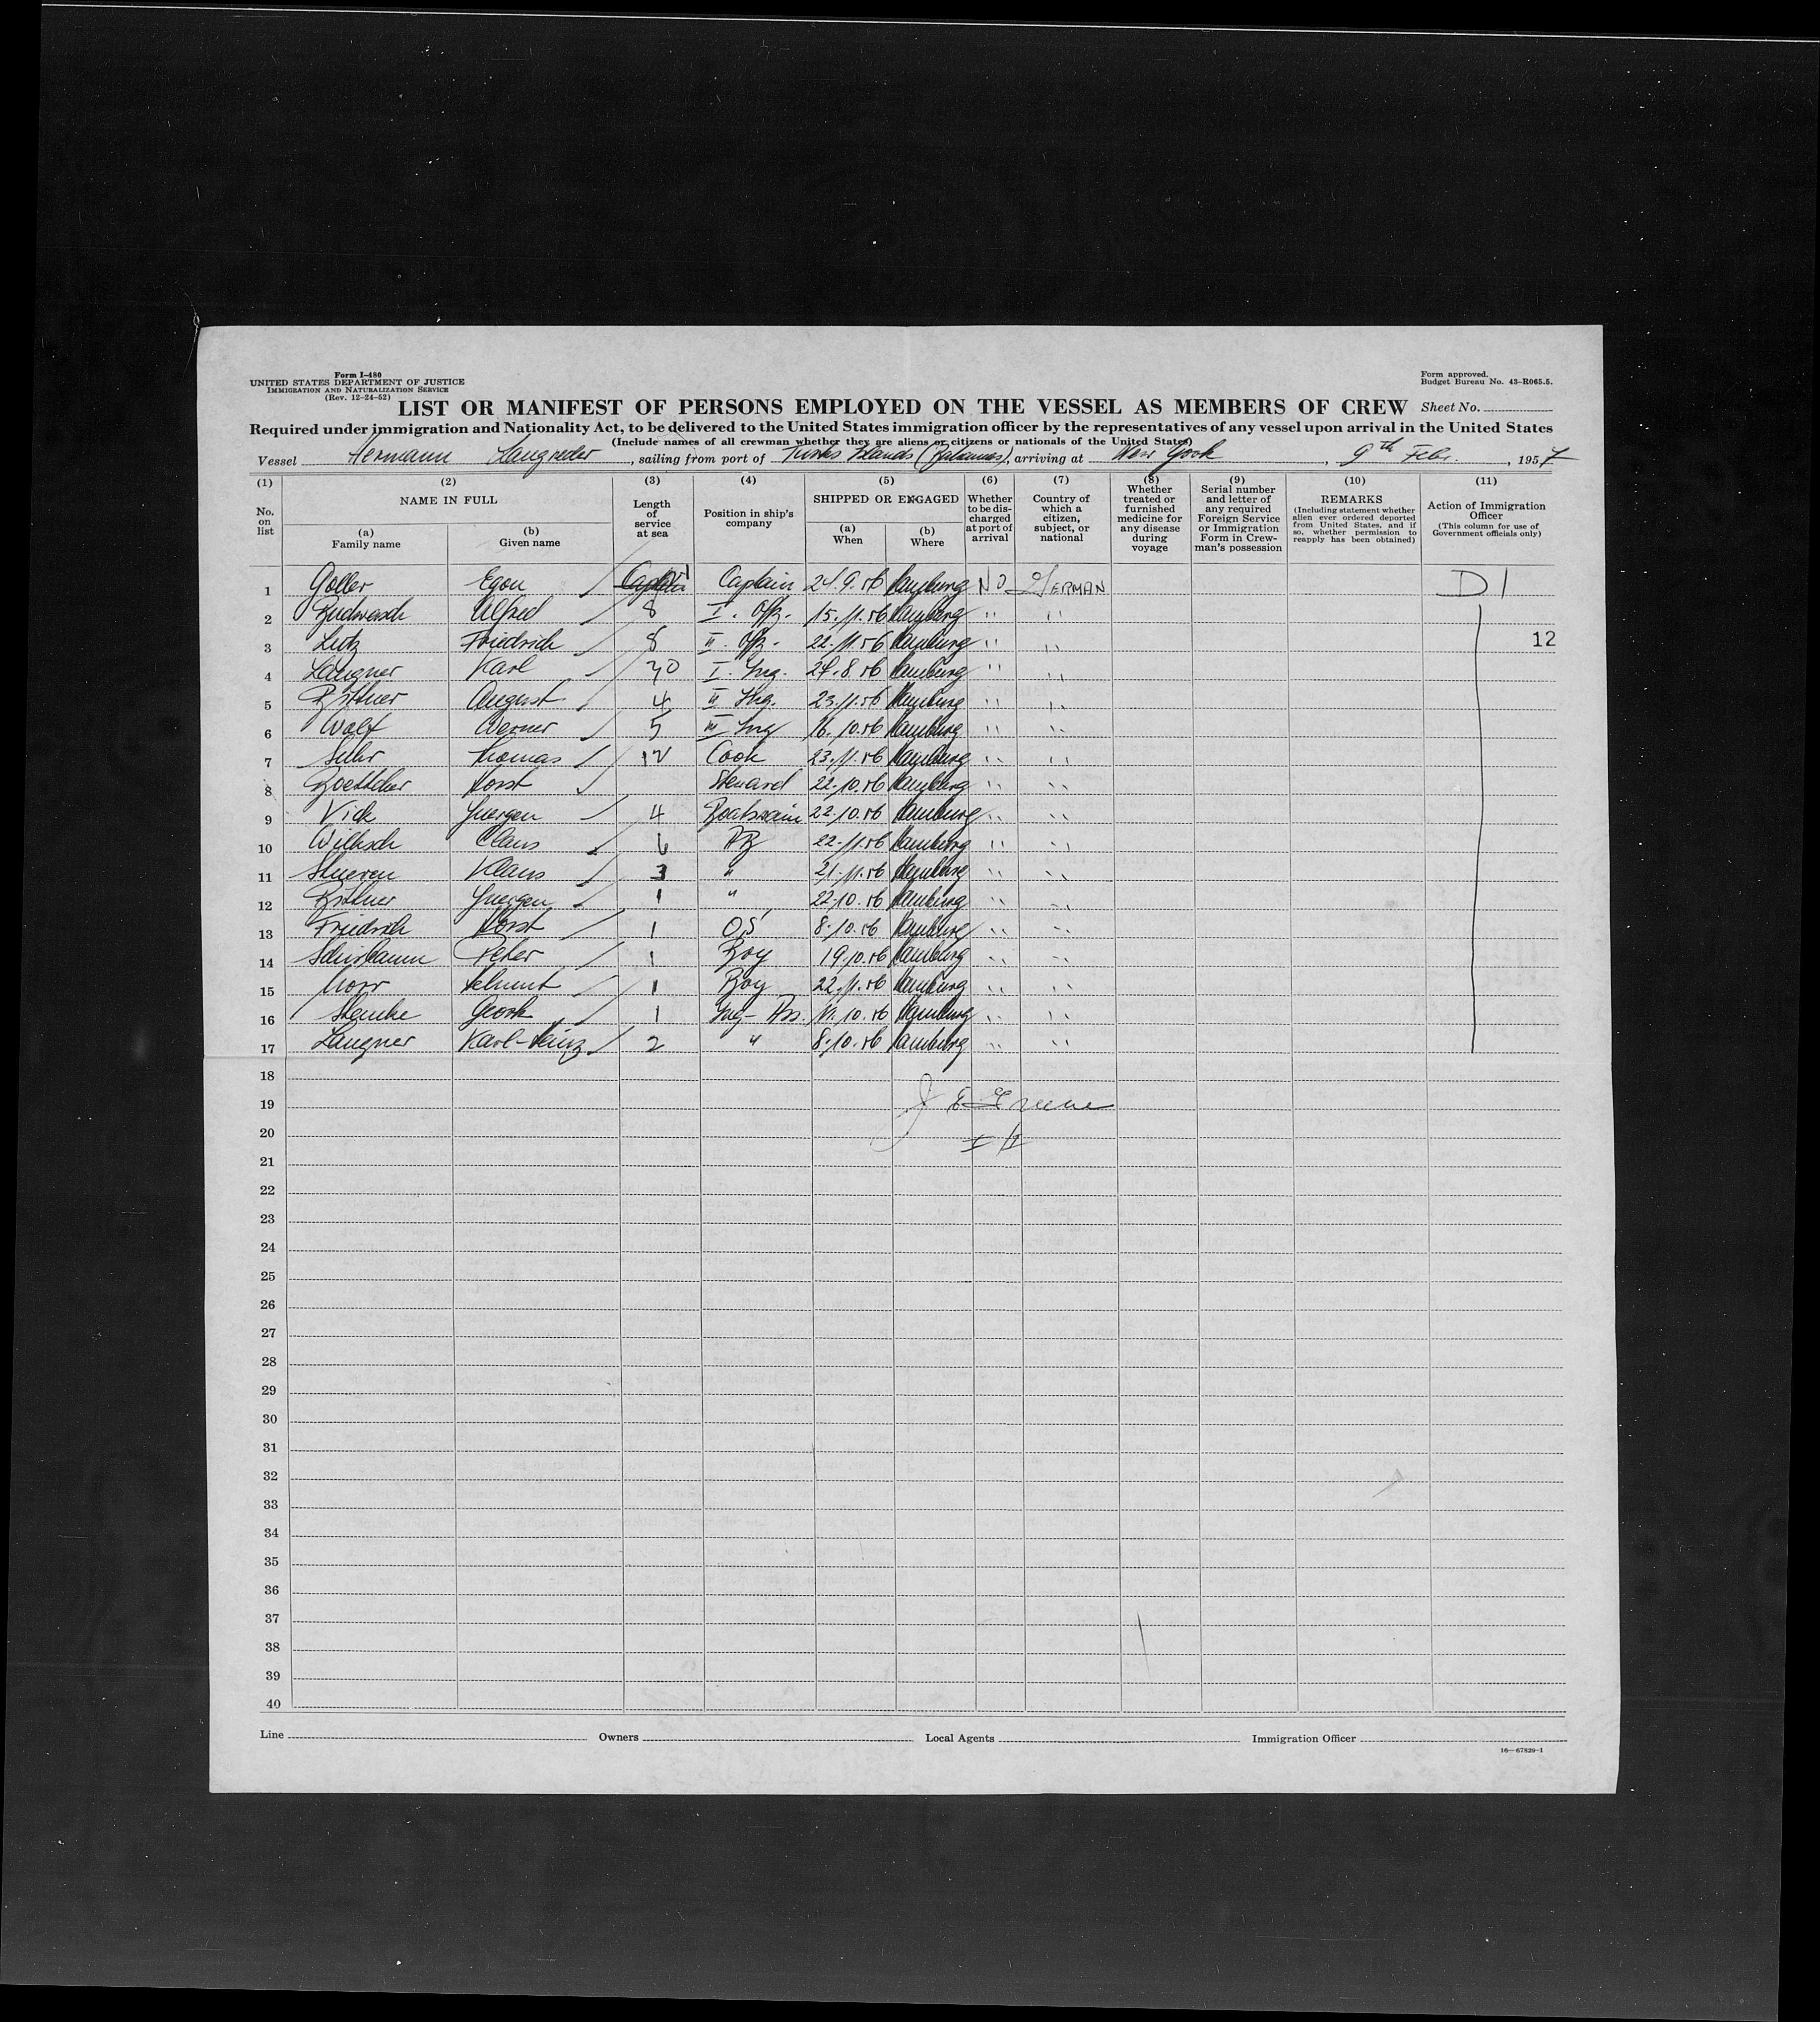 Form I-480
UNITED STATES DEPARTMENT OF JUSTICE
IMMIGRATION AND NATURALIZATION SERVICE
(Rev. 12-24-52)
Form approved.
Budget Bureau No. 43-R065.5.
LIST OR MANIFEST OF PERSONS EMPLOYED ON THE VESSEL AS MEMBERS OF CREW Sheet No.
Required under immigration and Nationality Act, to be delivered to the United States immigration officer by the representatives of any vessel upon arrival in the United States
(Include names of all crewman whether they are aliens or citizens or nationals of the United States)
Vessel Hermann Langreder, sailing from port of Turks Islands (Bahamas), arriving at New York, 9th Febr., 1957
(1) No. on list
(2) NAME IN FULL
(a) Family name
(b) Given name
(3) Length of service at sea
(4) Position in ship's company
(5) SHIPPED OR ENGAGED
(a) When
(b) Where
(6) Whether to be discharged at port of arrival
(7) Country of which a citizen, subject, or national
(8) Whether treated or furnished medicine for any disease during voyage
(9) Serial number and letter of any required Foreign Service or Immigration Form in Crewman's possession
(10) REMARKS (Including statement whether alien ever ordered deported from United States, and if so, whether permission to reapply has been obtained)
(11) Action of Immigration Officer (This column for use of Government officials only)
1 Goller Egon Captain 24.9.56 Hamburg NO GERMAN D1
2 Alfred 8 I. Offz. 15.11.56 Hamburg " "
3 Lutz Friedrich 8 II. Offz. 22.11.56 Hamburg " " 12
4 Langner Karl I. Ing. Hamburg " "
5 Bittner August 4 II Ing. 23.11.56 Hamburg " "
6 Wolf Werner 5 III Ing 16.10.56 Hamburg " "
7 Suhr Thomas 12 Cook 23.11.56 Hamburg " "
8 Boettcher Horst Steward 22.10.56 Hamburg " "
9 Vick Juergen 4 Boatswain 22.10.56 Hamburg " "
10 Claus 6 AB 22.11.56 Hamburg " "
11 Stueven Klaus 3 " 21.11.56 Hamburg " "
12 Bittner Juergen 1 " 22.10.56 Hamburg " "
13 Friedrich Horst 1 OS 8.10.56 Hamburg " "
14 Schirbaum Peter 1 Boy 19.10.56 Hamburg " "
15 Helmut 1 Boy 22.11.56 Hamburg " "
16 Georg 1 Ing-Ass. 11.10.56 Hamburg " "
17 Langner Karl-Heinz 2 " 8.10.56 Hamburg " "
18
19 J E Greene
20
21
22
23
24
25
26
27
28
29
30
31
32
33
34
35
36
37
38
39
40
Line Owners Local Agents Immigration Officer
16-67829-1